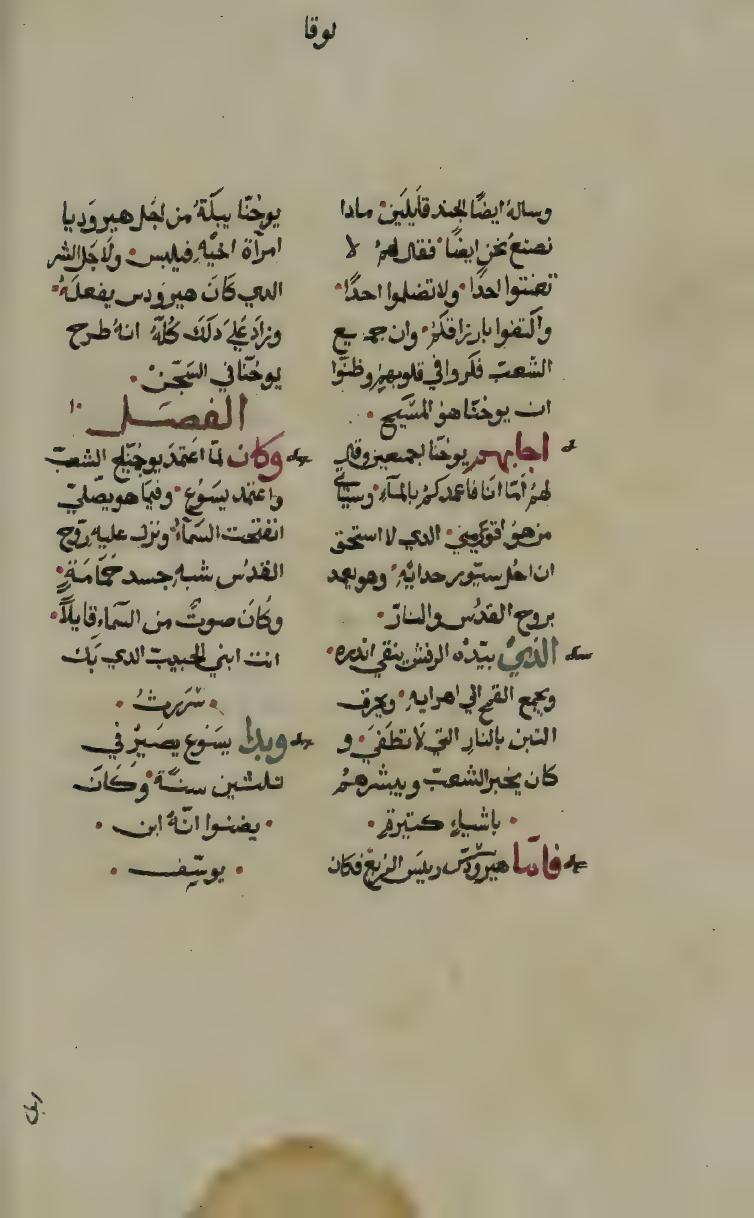 لوقا
وساله ايضًا الجند قايلين مادا
نصنع نحن ايضًا فقال لهم لا
تعنتوا احدًا ولا تضلموا احدًا
واكتفوا بارزاقكم وان جميع
الشعب فكروا في قلوبهم وظنوا
ان يوحنا هو المسيح
اجابهم يوحنا اجمعين وقال
لهم أمّا انا فاعمدكم بالمآء وسياتي
من هو اقوي مني الدي لا استحق
ان احل سيور حدايه وهو يعمد
بروح القدس والنار
الذي بيده الرفش ينقي اندره
ويجمع القمح الي اهرايه ويحرق
التبن بالنار التي لا تطفي و
كان يخبر الشعب ويبشرهم
باشياء كتيرة
فامّا هيرودس رييس الربع فكان
يوحنا يبكّته من اجل هيروديا
امرأة اخيه فيلبس ولاجل الشر
الدي كان هيرودس يفعله
وزاد علي دلك كله انه طرح
يوحنا في السجن
الفصل
وكان لمّا اعتمد يوحنا الشعب
واعتمد يسوع وفيما هو يصلي
انفتحت السماء ونزل عليه روح
القدس شبه جسد حمامة
وكان صوت من السماء قايلاً
انت ابني الحبيب الدي بك
سررت
وبدا يسوع يصير في
تلتين سنة وكان
يضنوا انه ابن
يوسف